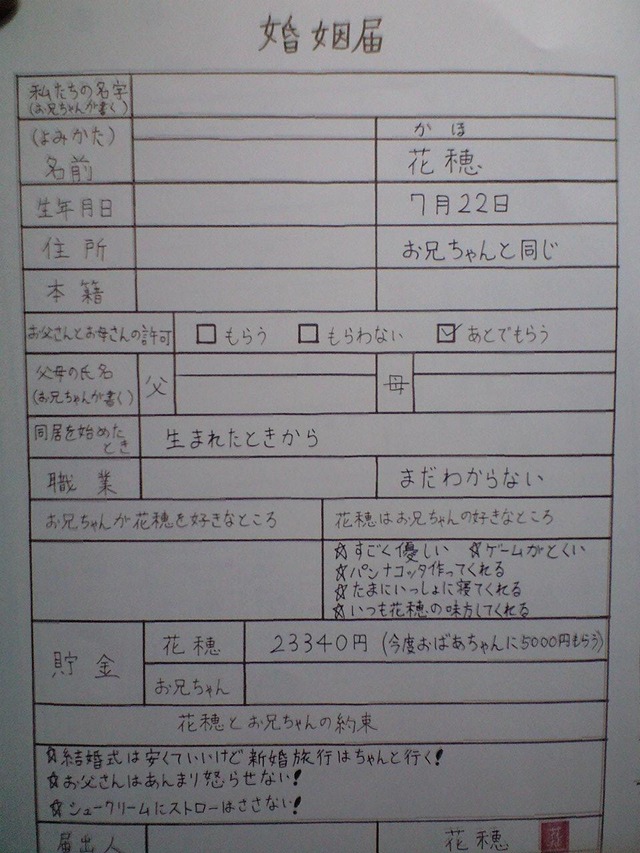 婚姻届
私たちの名字
(お兄ちゃんが書く)
(よみかた)
かほ
名前
花穂
生年月日
7月22日
住所
お兄ちゃんと同じ
本籍
お父さんとお母さんの許可
□もらう □もらわない ☑あとでもらう
父母の氏名
(お兄ちゃんが書く)
父
母
同居を始めた
とき
生まれたときから
職業
まだわからない
お兄ちゃんが花穂を好きなところ
花穂はお兄ちゃんの好きなところ
☆すごく優しい ☆ゲームがとくい
☆パンナコッタ作ってくれる
☆たまにいっしょに寝てくれる
☆いつも花穂の味方してくれる
貯金
花穂
23340円(今度おばあちゃんに5000円もらう)
お兄ちゃん
花穂とお兄ちゃんの約束
☆結婚式は安くていいけど新婚旅行はちゃんと行く!
☆お父さんはあんまり怒らせない!
☆シュークリームにストローはささない!
届出人
花穂